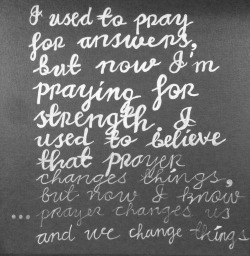 I used to pray
for answers,
but now I'm
praying for
strength. I
used to believe
that prayer
changes things,
but now I know
... prayer changes us
and we change things